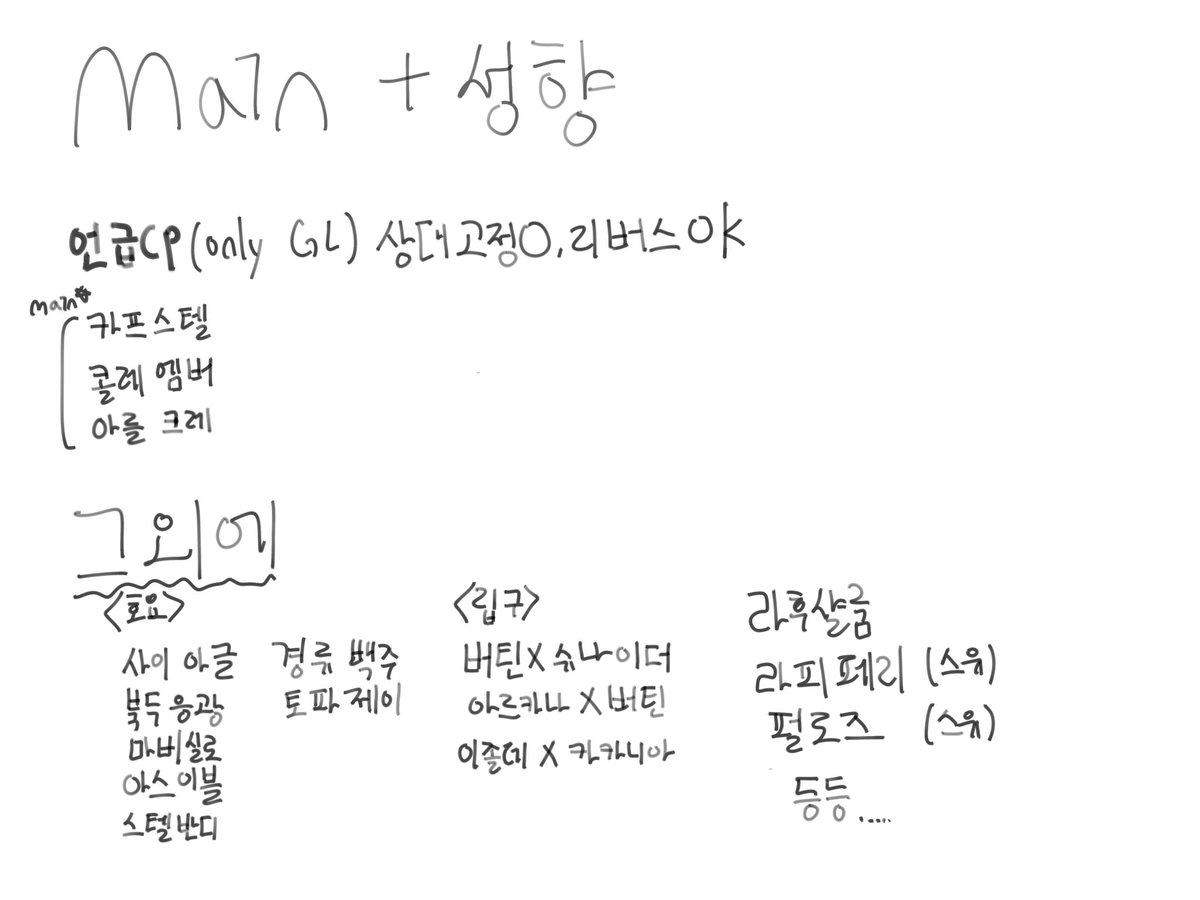 Main + 성향
언급CP (only GL) 상대고정O, 리버스OK
main*
카프스텔
콜레 엠버
아를 크레
그외에
<호요>
사이 아글
북두 응광
마비실로
아스이블
스텔반디
경류 백주
토파 제이
<립구>
버틴X슈나이더
아르카나X버틴
이졸데X카카니아
라후샬굼
라피페리 (스유)
펄로즈 (스유)
등등.....